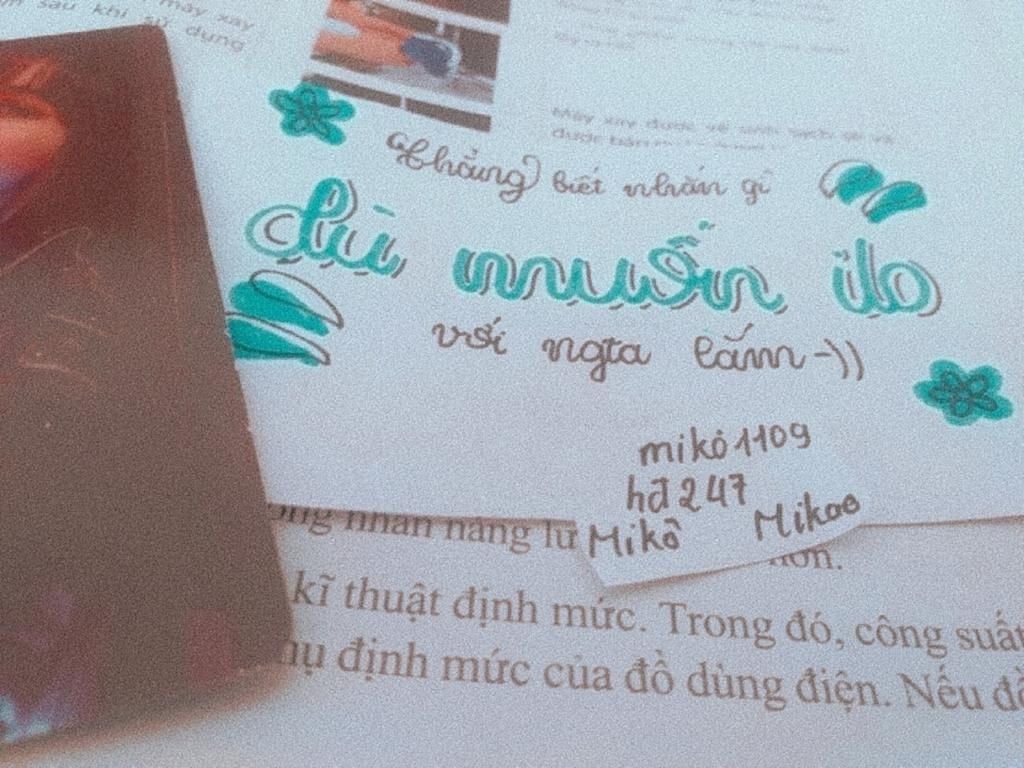 máy xay
sau khi sử dụng
Máy xay được vệ sinh sạch sẽ và
được bảo
Chẳng biết nhắn gì
dù muốn ib
với ngta lắm -))
mikô1109
hđ247
Mikô Mikao
nhãn năng lư
hơn.
kĩ thuật định mức. Trong đó, công suất
định mức của đồ dùng điện. Nếu đồ